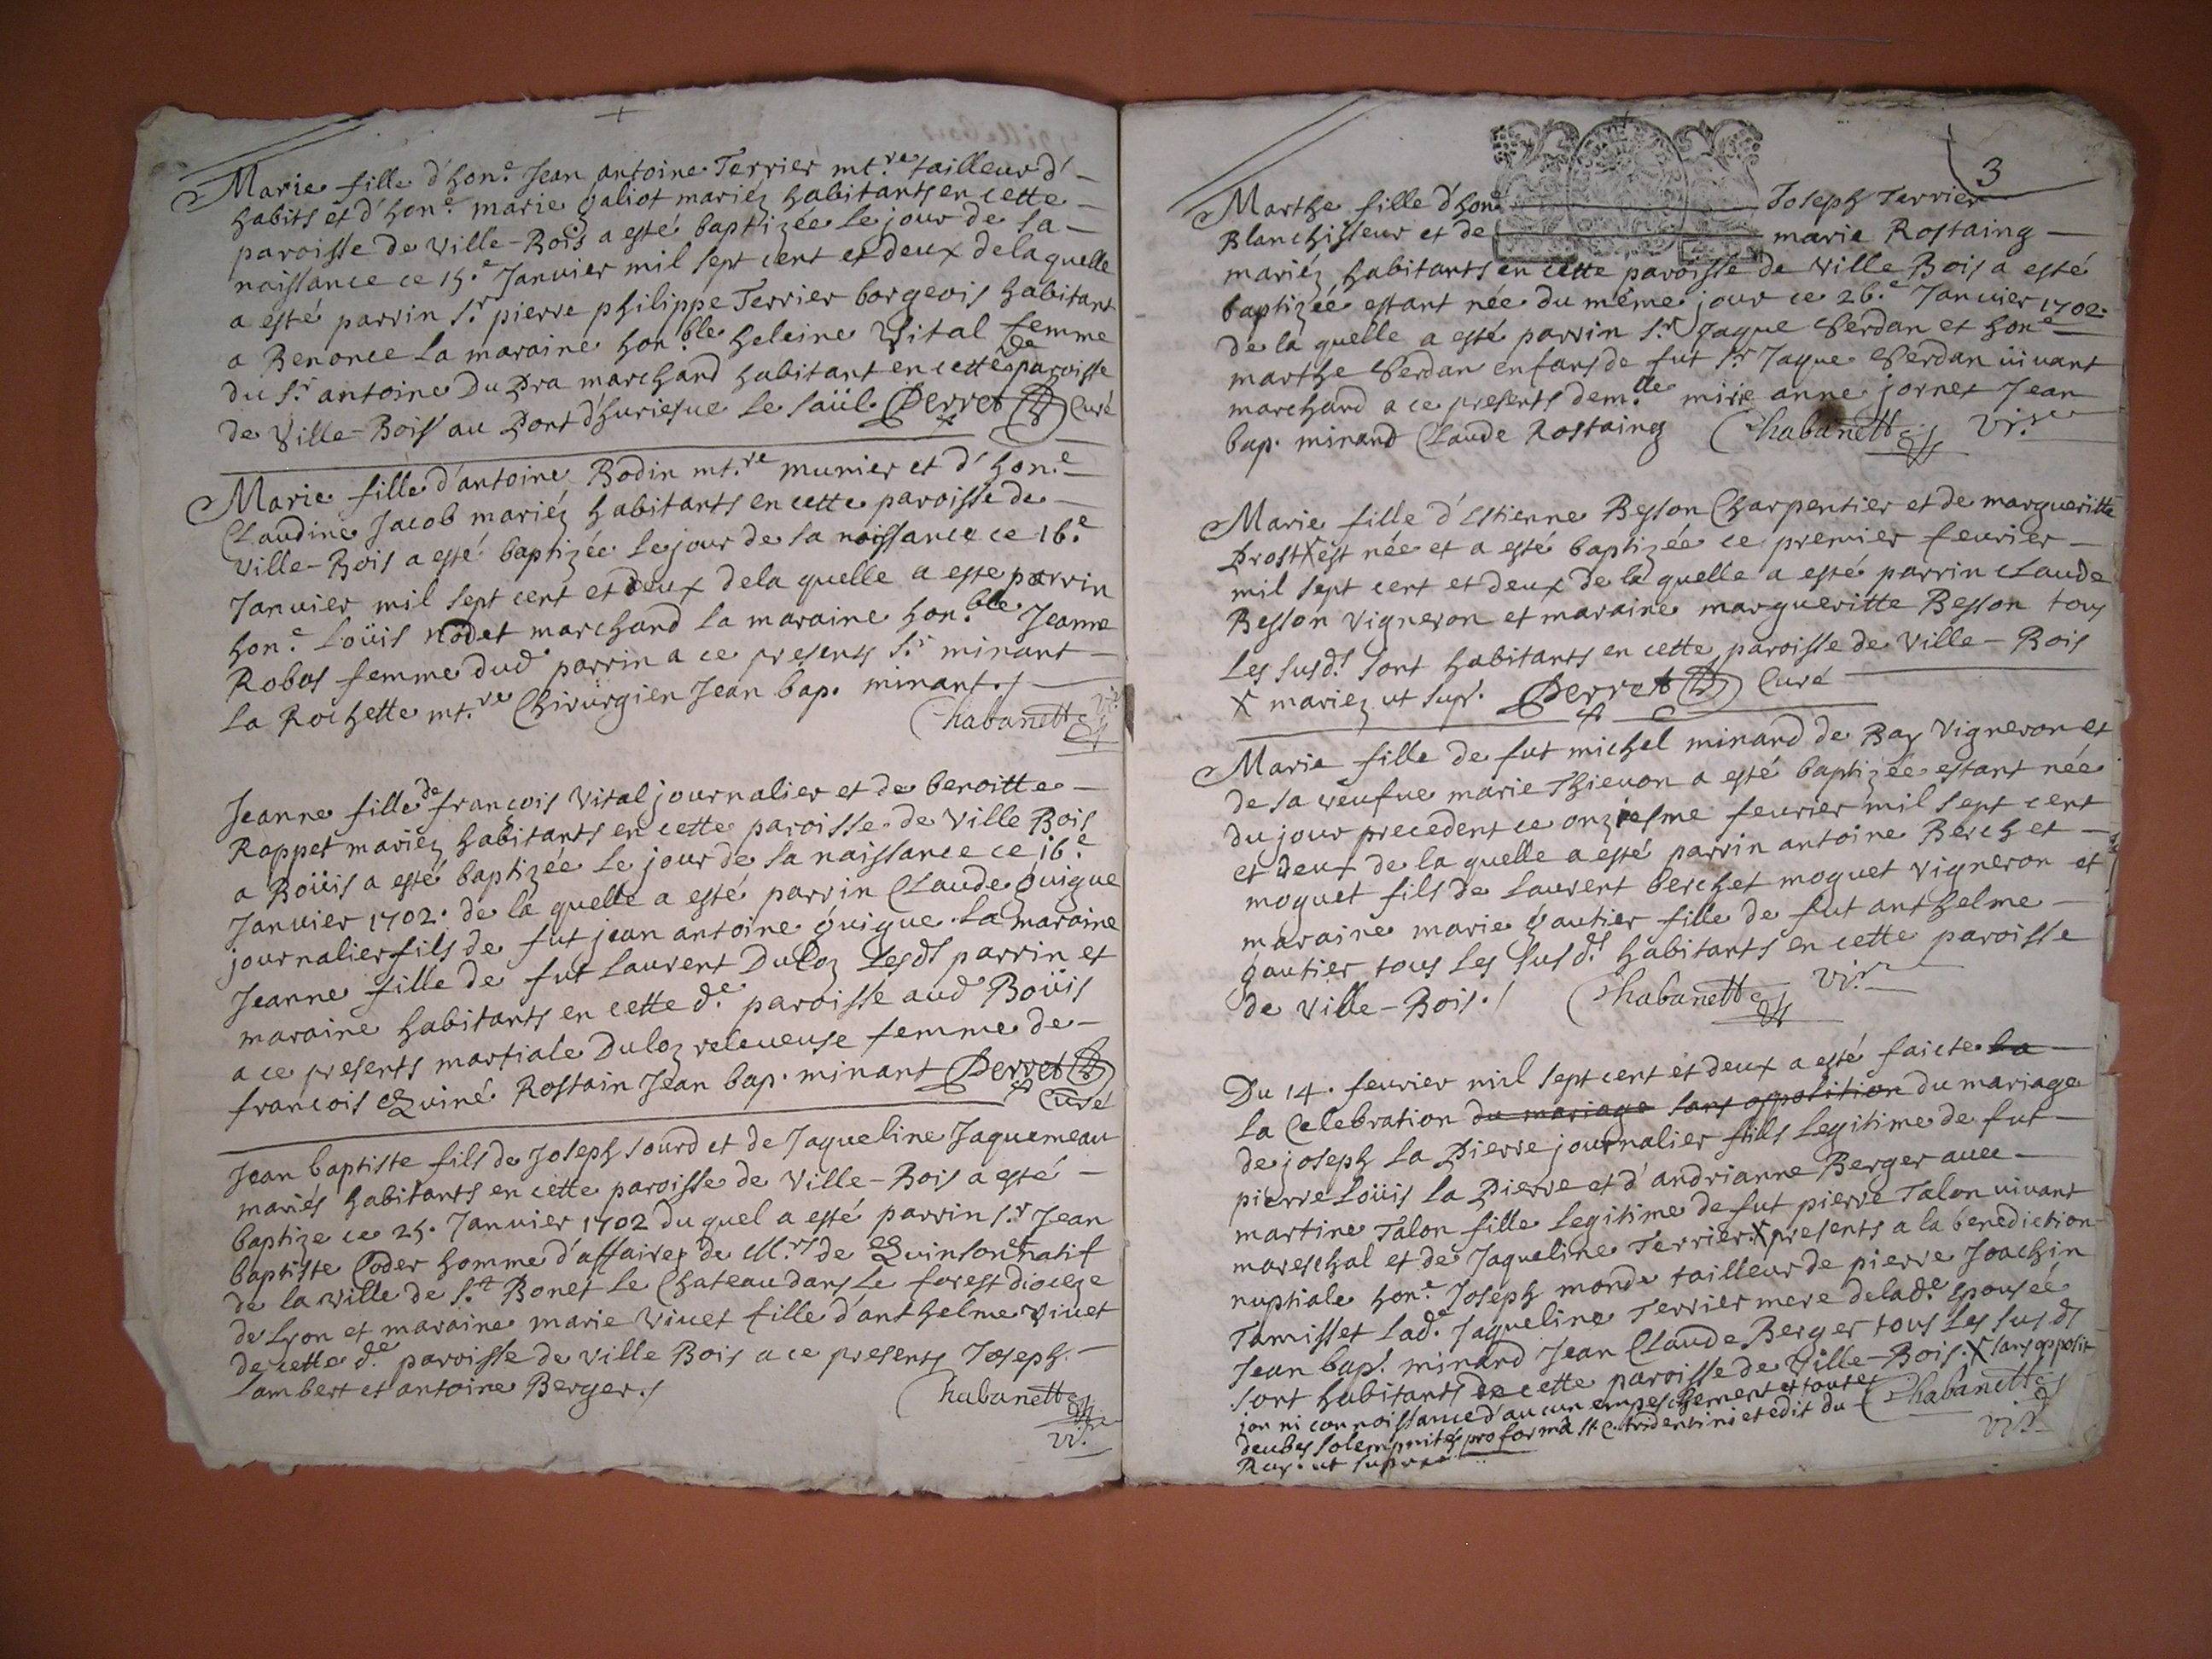 Marie fille d'hon.e Jean antoine Terrier mt.re tailleur d'
habits et d'hon.e marie galiot mariez habitants en cette
paroisse de Ville-Bois a esté baptizée le jour de sa
naissance ce 15.e Janvier mil sept cent et deux de laquelle
a esté parrin S.r pierre philippe Terrier borgeois habitant
a Benonce la maraine hon.ble heleine Vital femme
du S.r antoine Du Pra marchand habitant en cette de paroisse
de Ville-Bois au Port d'huriesue le saüil Perret Curé
Marie fille d'antoine Bodin mt.re munier et d'hon.e
Claudine Jacob mariéz habitants en cette paroisse de
Ville-Bois a esté baptizée le jour de sa naissance ce 16.e
Janvier mil sept cent et deux de la quelle a este parrin
hon.e Loüis nodet marchand la maraine hon.ble Jeanne
Robas femme dud parrin a ce presents S.r minant
la Rochette mt.re Chirurgien Jean bap. minant./
Chabanett vi.re
Jeanne fille de françois Vital journalier et de benoitte
Rappet mariez habitants en cette paroisse de Ville Bois
a Boüis a esté baptizée le jour de sa naissance ce 16.e
Janvier 1702. de la quelle a esté parrin Claude guigue
journalier fils de fut jean antoine guigue la maraine
Jeanne fille de fut Laurent Duloz Lesds parrin et
maraine habitants en cette d.e paroisse aud Boüis
a ce presents martiale Duloz releueuse femme de
francois Quiné Rostain Jean bap. minant Perret
Curé
Jean baptiste fils de Joseph sourd et de Jaqueline Jaquemeau
mariés habitants en cette paroisse de Ville-Bois a esté
baptize ce 25. Janvier 1702 du quel a esté parrin S.r Jean
baptiste Coder homme d'affaires de M.rs de Quinson natif
de la ville de S.t Bonet le Chateau dans le forest dioceze
de Lyon et maraine marie Vivet fille d'anthelme Vivet
de cette d.e paroisse de Ville Bois a ce presents Joseph
Lambert et antoine Berger./
Chabanett
vi.re
3
Marthe fille d'hon.e Joseph Terrier
Blanchisseur et de marie Rostaing
mariéz habitants en cette paroisse de Ville Bois a esté
baptizée estant née du même jour ce 26.e Janvier 1702.
de la quelle a esté parrin S.r Jaque Verdan et hon.e
marthe Verdan enfans de fut S.r Jaque Verdan vivant
marchand a ce presents dem.lle mirie anne jornet Jean
bap. minand Claude Rostaing Chabanett vi.re
Marie fille d'Estienne Besson Charpentier et de margueritte
Prost X est née et a esté baptizée ce premier feurier
mil sept cent et deux de la quelle a esté parrin claude
Besson Vigneron et maraine margueritte Besson tous
Les susds sont habitants en cette paroisse de Ville-Bois
X mariez ut supr. Perret Curé
Marie fille de fut michel minand de Bay Vigneron et
de sa veufue marie Thieuon a esté baptizée estant née
du jour precedent ce onziesme feurier mil sept cent
et deux de la quelle a esté parrin antoine Berchet
moquet fils de Laurent berchet moquet Vigneron et
maraine marie gautier fille de fut anthelme
gautier tous les susd.s habitants en cette paroisse
de Ville-Bois./ Chabanett vi.re
Du 14. feurier mil sept cent et deux a esté faicte la
la Celebration du mariage sans oppolition du mariage
de joseph la Pierre journalier fils legitime de fut
pierre Loüis la Pierre et d'andrianne Berger auec
martine Talon fille legitime de fut pierre Talon uiuant
mareschal et de Jaqueline Terrier X presents a la benediction
nuptiale hon.e Joseph monde tailleur de pierre Joachin
Tamisset lad.e Jaqueline Terrier mere de lad.e Epousée
Jean bap.t minand Jean Claude Berger tous les susds
sont habitants de cette paroisse de Ville-Bois. X sans opposit
ion ni connoissance d'aucun empeschement et toutes
deubes solempnités pro forma st. C. tridentini et edit du Chabanett
Roy. ut supra vi.re